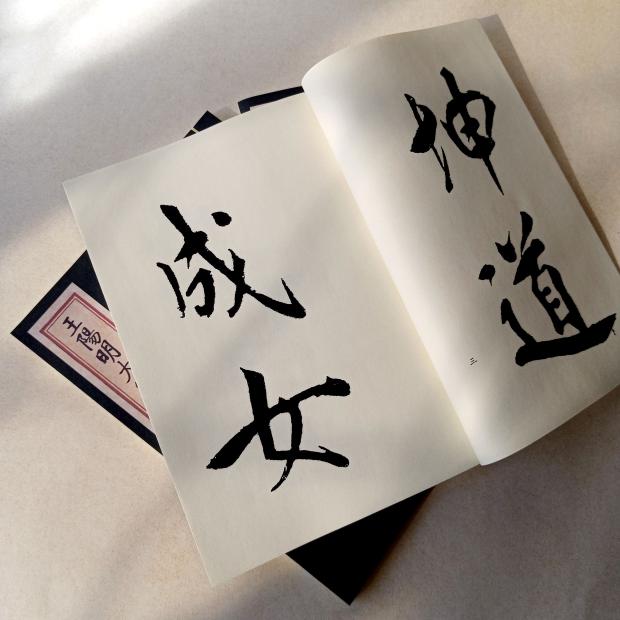 坤道
成女
三
王陽明大